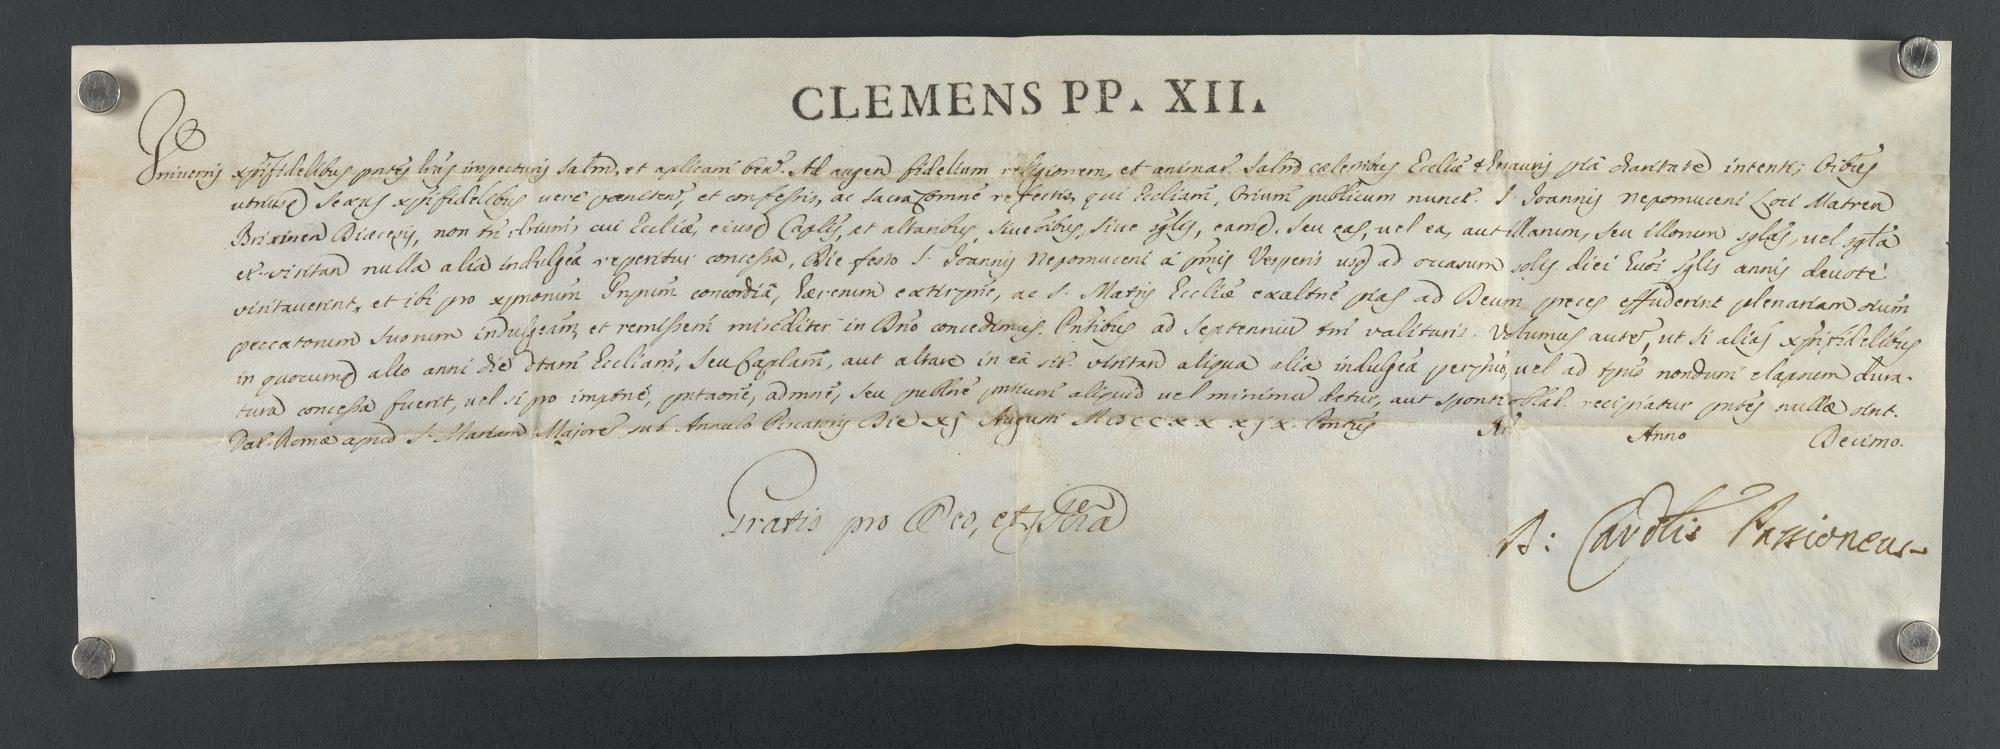 CLEMENS PP. XII.
Universis xpifidelibus pntes lras inspecturis salm, et aplicam ben. Ad augen fidelium religionem, et animar. salm cælestibus Ecclię thesauris piâ charitate intenti; Oibus
utriusq sexus xpifidelibus vere pœniten, et confessis, ac sacra comne refectis, qui Eccliam, Orium publicum nuncl. S. Joannis Nepomuceni Loci Matren
Brixinen Diœcesis, non tn cui Ecclię, eiusq Caplis, et altaribus, sive oibus, sive sglis, eamq. seu eas, vel ea, aut illarum, seu illorum sglas, vel sgla
et visitan nulla alia indulgea reperitur concessa, Die festo S. Joannis Nepomuceni a pmis Vesperis usq ad occasum solis diei hmoi sglis annis devote
visitaverint, et ibi pro xpnorum Pnpum concordiâ, hæresum extirpne, ac S. Matris Ecclię exaltne pias ad Deum preces effuderint plenariam oium
peccatorum suorum indulgeam, et remissem misediter in Dno concedimus. Pntibus ad septennium tm valituris. Volumus aute, ut si alias xpifidelibus
in quocumq alio anni die dtam Eccliam, seu Caplam, aut altare in ea sit. visitan aliqua alia indulgea perpuo, vel ad tpus nondum elapsum dura-
tura concessa fuerit, vel si pro impne, pntaone, admne, seu publne pntium aliquid vel minimu detur, aut sponte oblat. recipiatur pntes nullæ sint.
Dat. Romæ apud S. Mariam Majorem sub Annulo Piscatoris Die xj Augusti MDCCXXXIX. Pontus Nri Anno Decimo.
Gratis pro Deo, et
Carolis Passioneus